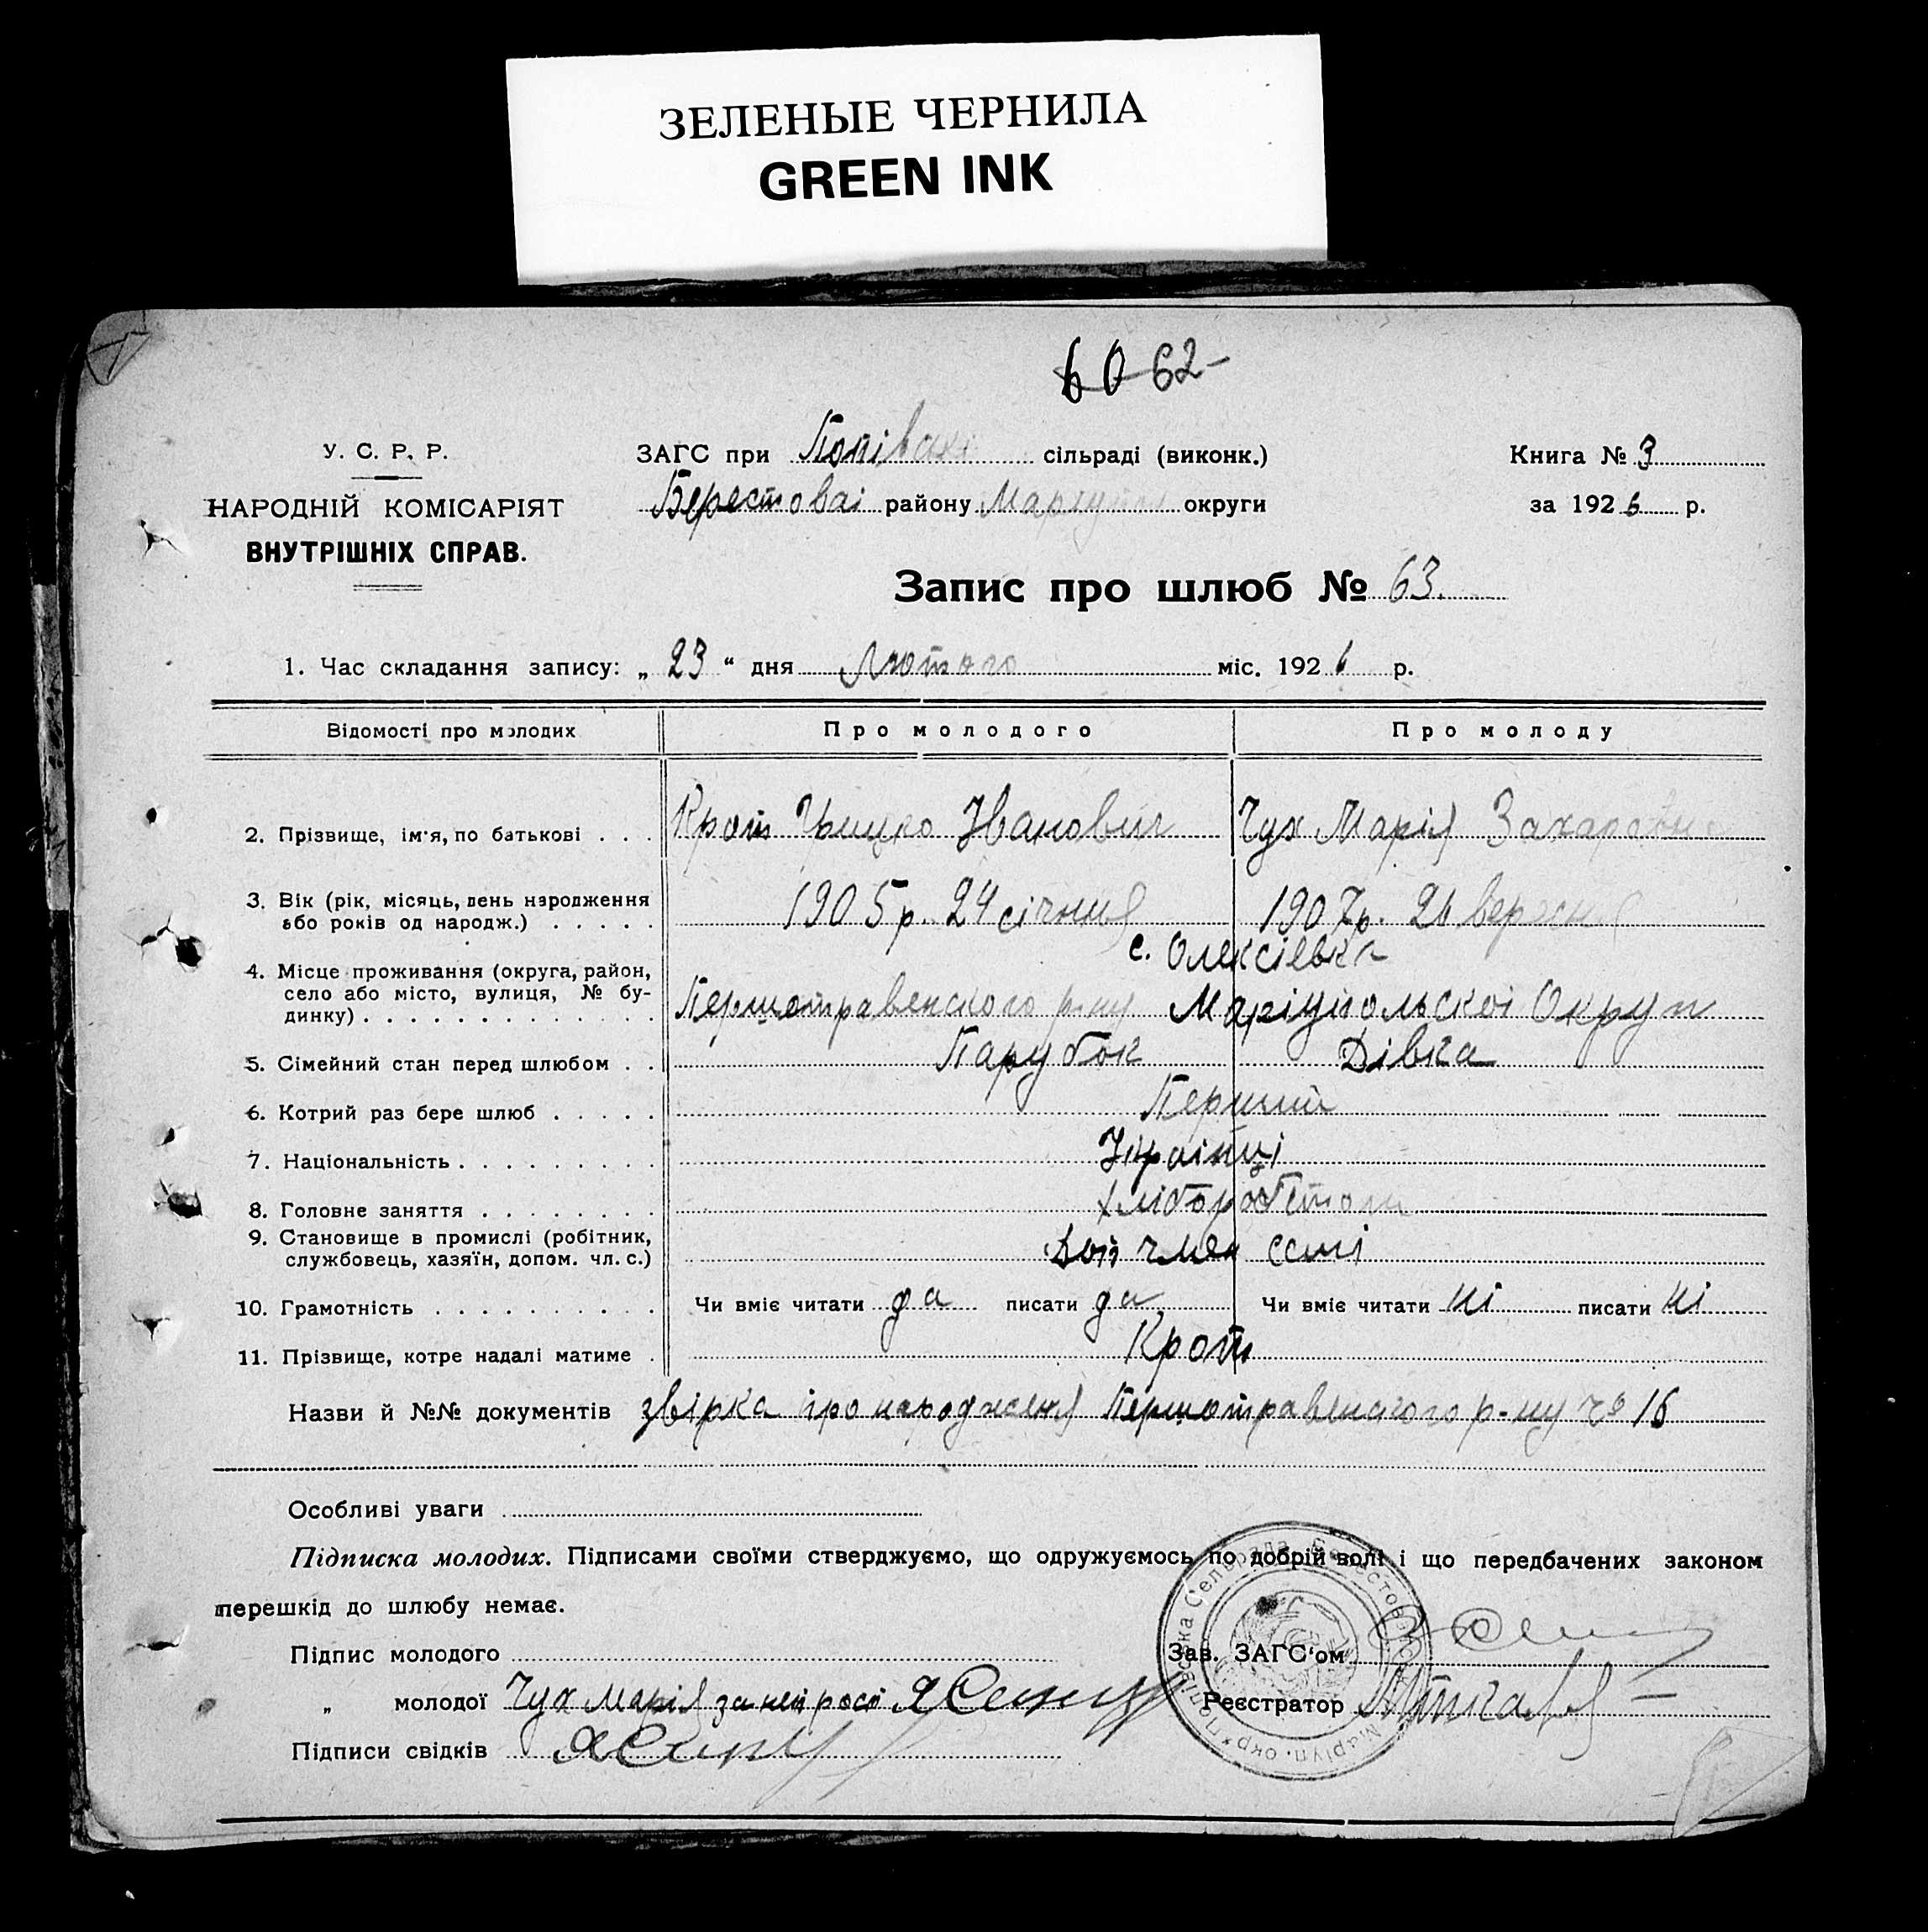 ЗЕЛЕНЫЕ ЧЕРНИЛА
GREEN INK
60 62
У. С. Р. Р.
НАРОДНІЙ КОМІСАРІЯТ
ВНУТРІШНІХ СПРАВ.
ЗАГС при сільраді (виконк.)
Берестоваі району Маріуп округи
Книга № 3
за 1926 р.
Запис про шлюб № 63.
1. Час складання запису: „ 23 “ дня Лютого міс. 1926 р.
Відомості про молодих Про молодого Про молоду
2. Прізвище, ім'я, по батькові . . . Крот Грицко Іванович Чух Марія Захаровна
3. Вік (рік, місяць, день народження
або років од народж.) . . . . . 1905 р. 24 січня 1907 р. 26 вересня
с. Олексіевка
4. Місце проживання (округа, район,
село або місто, вулиця, № бу-
динку) . . . . . . . . . . . . . Першотравенского р-ну Маріупольскоі Округи
5. Сімейний стан перед шлюбом . . Парубок Дівка
6. Котрий раз бере шлюб . . . . . Перший
7. Національність . . . . . . . . . Украінці
8. Головне заняття . . . . . . . .
9. Становище в промислі (робітник,
службовець, хазяїн, допом. чл. с.) Доп член семі
10. Грамотність . . . . . . . . . . Чи вміє читати да писати да Чи вміє читати ні писати ні
11. Прізвище, котре надалі матиме . Крот
Назви й №№ документів звірка про народженя Першотравенского р-ну 16
Особливі уваги
Підписка молодих. Підписами своїми стверджуємо, що одружуємось по добрій волі і що передбачених законом
перешкід до шлюбу немає.
Підпис молодого
Зав. ЗАГС'ом
„ молодої Чух Марія за неі росп
Реєстратор
Підписи свідків
Попівська Сельрада Берестов Маріуп. окр.